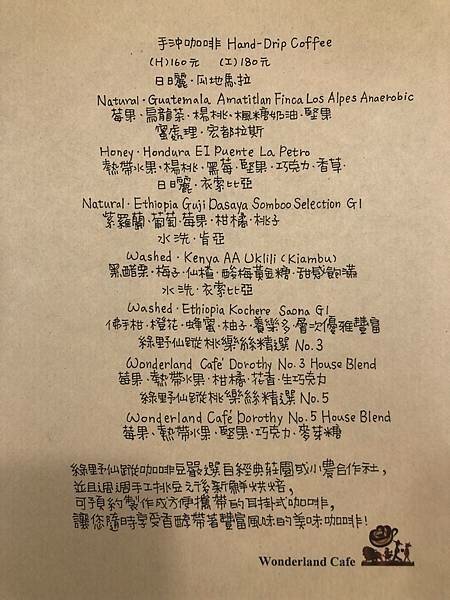 手沖咖啡 Hand-Drip Coffee
(H)160元 (I)180元
日曬·瓜地馬拉
Natural·Guatemala Amatitlan Finca Los Alpes Anaerobic
莓果·烏龍茶·楊桃·楓糖奶油·堅果
蜜處理·宏都拉斯
Honey·Hondura EI Puente La Petro
熱帶水果·楊桃·黑莓·堅果·巧克力·香草·
日曬·衣索比亞
Natural·Ethiopia Guji Dasaya Somboo Selection G1
紫羅蘭·葡萄·莓果·柑橘·桃子
水洗·肯亞
Washed·Kenya AA Uklili (Kiambu)
黑醋栗·梅子·仙楂·酸梅黃金糖·甜感飽滿
水洗·衣索比亞
Washed·Ethiopia Kochere Saona G1
佛手柑·橙花·蜂蜜·柚子·養樂多·層次優雅豐富
綠野仙蹤桃樂絲精選 No.3
Wonderland Café Dorothy No.3 House Blend
莓果·熱帶水果·柑橘·花香·生巧克力
綠野仙蹤桃樂絲精選 No.5
Wonderland Café Dorothy No.5 House Blend
莓果、熱帶水果·堅果·巧克力·麥芽糖
綠野仙蹤咖啡豆嚴選自經典莊園或小農合作社,
並且週週手工挑豆後新鮮烘焙,
可預約製作成方便攜帶的耳掛式咖啡,
讓您隨時享受香醇帶著豐富風味的美味咖啡!
Wonderland Cafe